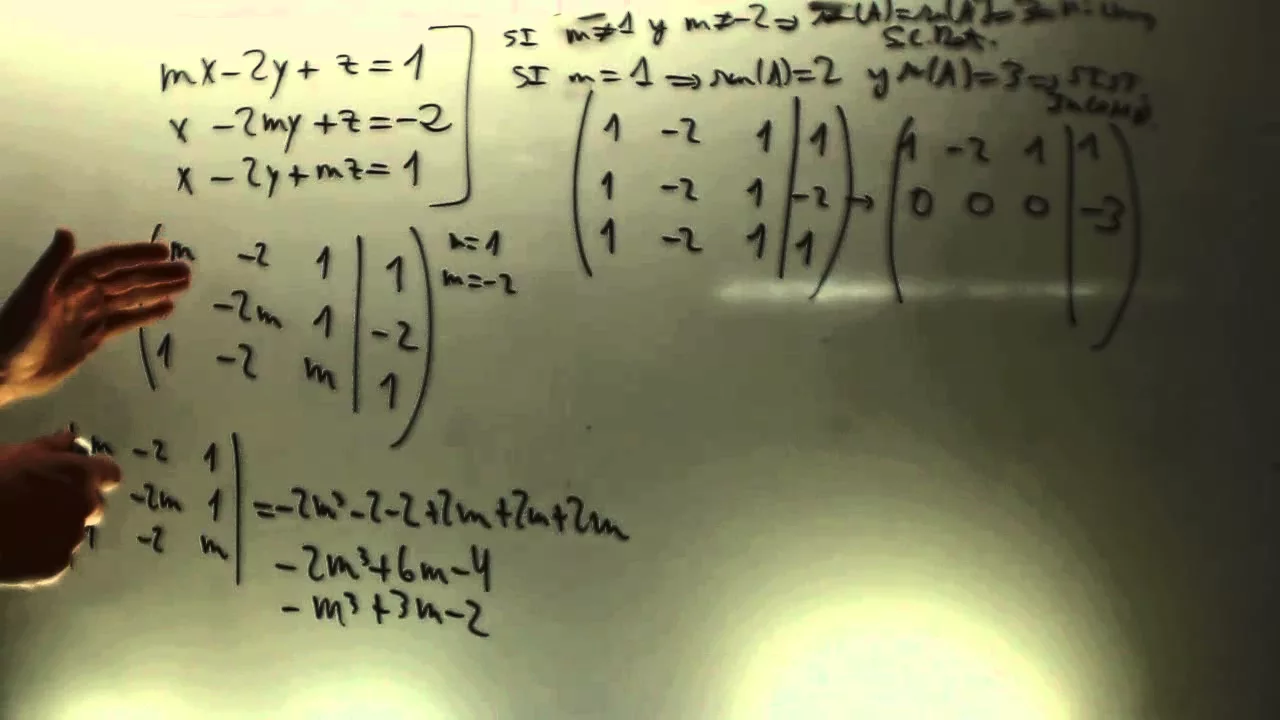 mx-2y+z=1
x-2my+z=-2
x-2y+mz=1
m -2 1 | 1
-2m 1 | -2
1 -2 m | 1
m=-2
m -2 1
-2m 1
1 -2 m
=-2m³-2-2+2m+2m+2m
-2m³+6m-4
-m³+3m-2
SI m≠1 y m≠-2⇒
SI m=1⇒ (A)=2 y (A)=3⇒
1 -2 1 | 1
1 -2 1 | -2
1 -2 1 | 1
→
1 -2 1 | 1
0 0 0 | -3